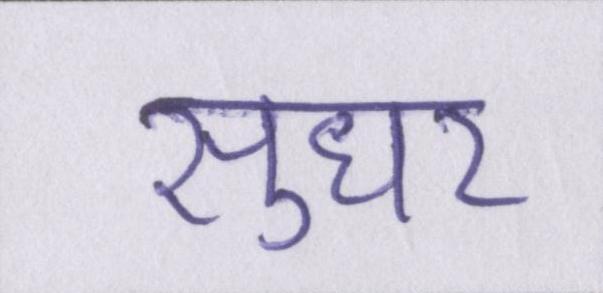 सुधर